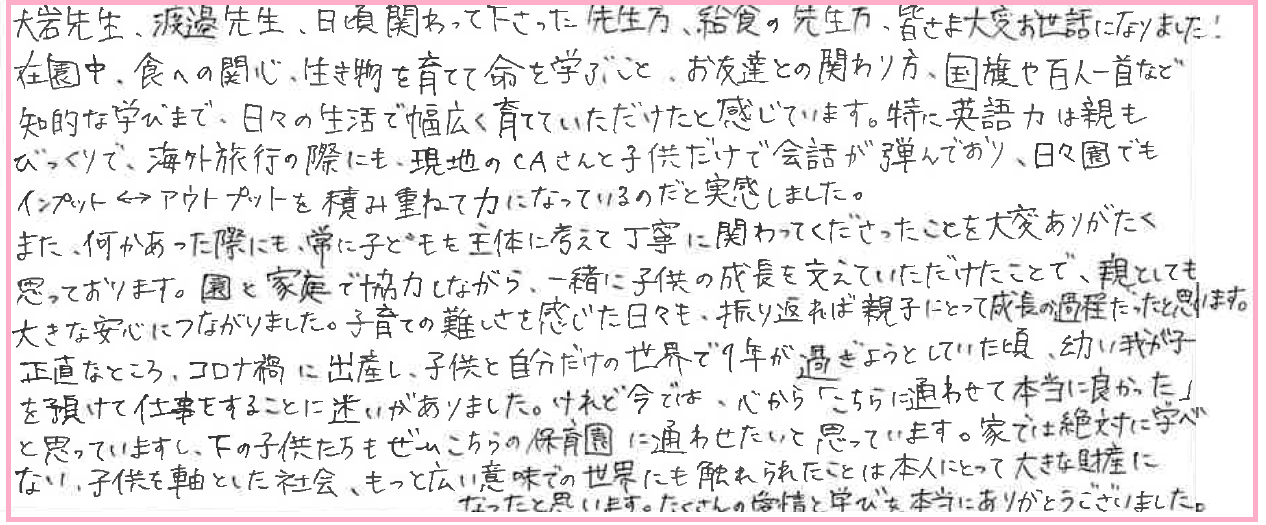 大岩先生、渡邉先生、日頃関わって下さった先生方、給食の先生方、皆さま大変お世話になりました！
在園中、食への関心、生き物を育てて命を学ぶこと、お友達との関わり方、国旗や百人一首など
知的な学びまで、日々の生活で幅広く育てていただけたと感じています。特に英語力は親も
びっくりで、海外旅行の際にも、現地のCAさんと子供だけで会話が弾んでおり、日々園でも
インプット↔アウトプットを積み重ねて力になっているのだと実感しました。
また、何かあった際にも、常に子どもを主体に考えて丁寧に関わってくださったことを大変ありがたく
思っております。園と家庭で協力しながら、一緒に子供の成長を支えていただけたことで、親としても
大きな安心につながりました。子育ての難しさを感じた日々も、振り返れば親子にとって成長の過程だったと思います。
正直なところ、コロナ禍に出産し、子供と自分だけの世界で1年が過ぎようとしていた頃、幼い我が子
を預けて仕事をすることに迷いがありました。けれど今では、心から「こちらに通わせて本当に良かった」
と思っていますし、下の子供たちもぜひこちらの保育園に通わせたいと思っています。家では絶対に学べ
ない、子供を軸とした社会、もっと広い意味での世界にも触れられたことは本人にとって大きな財産に
なったと思います。たくさんの愛情と学びを本当にありがとうございました。